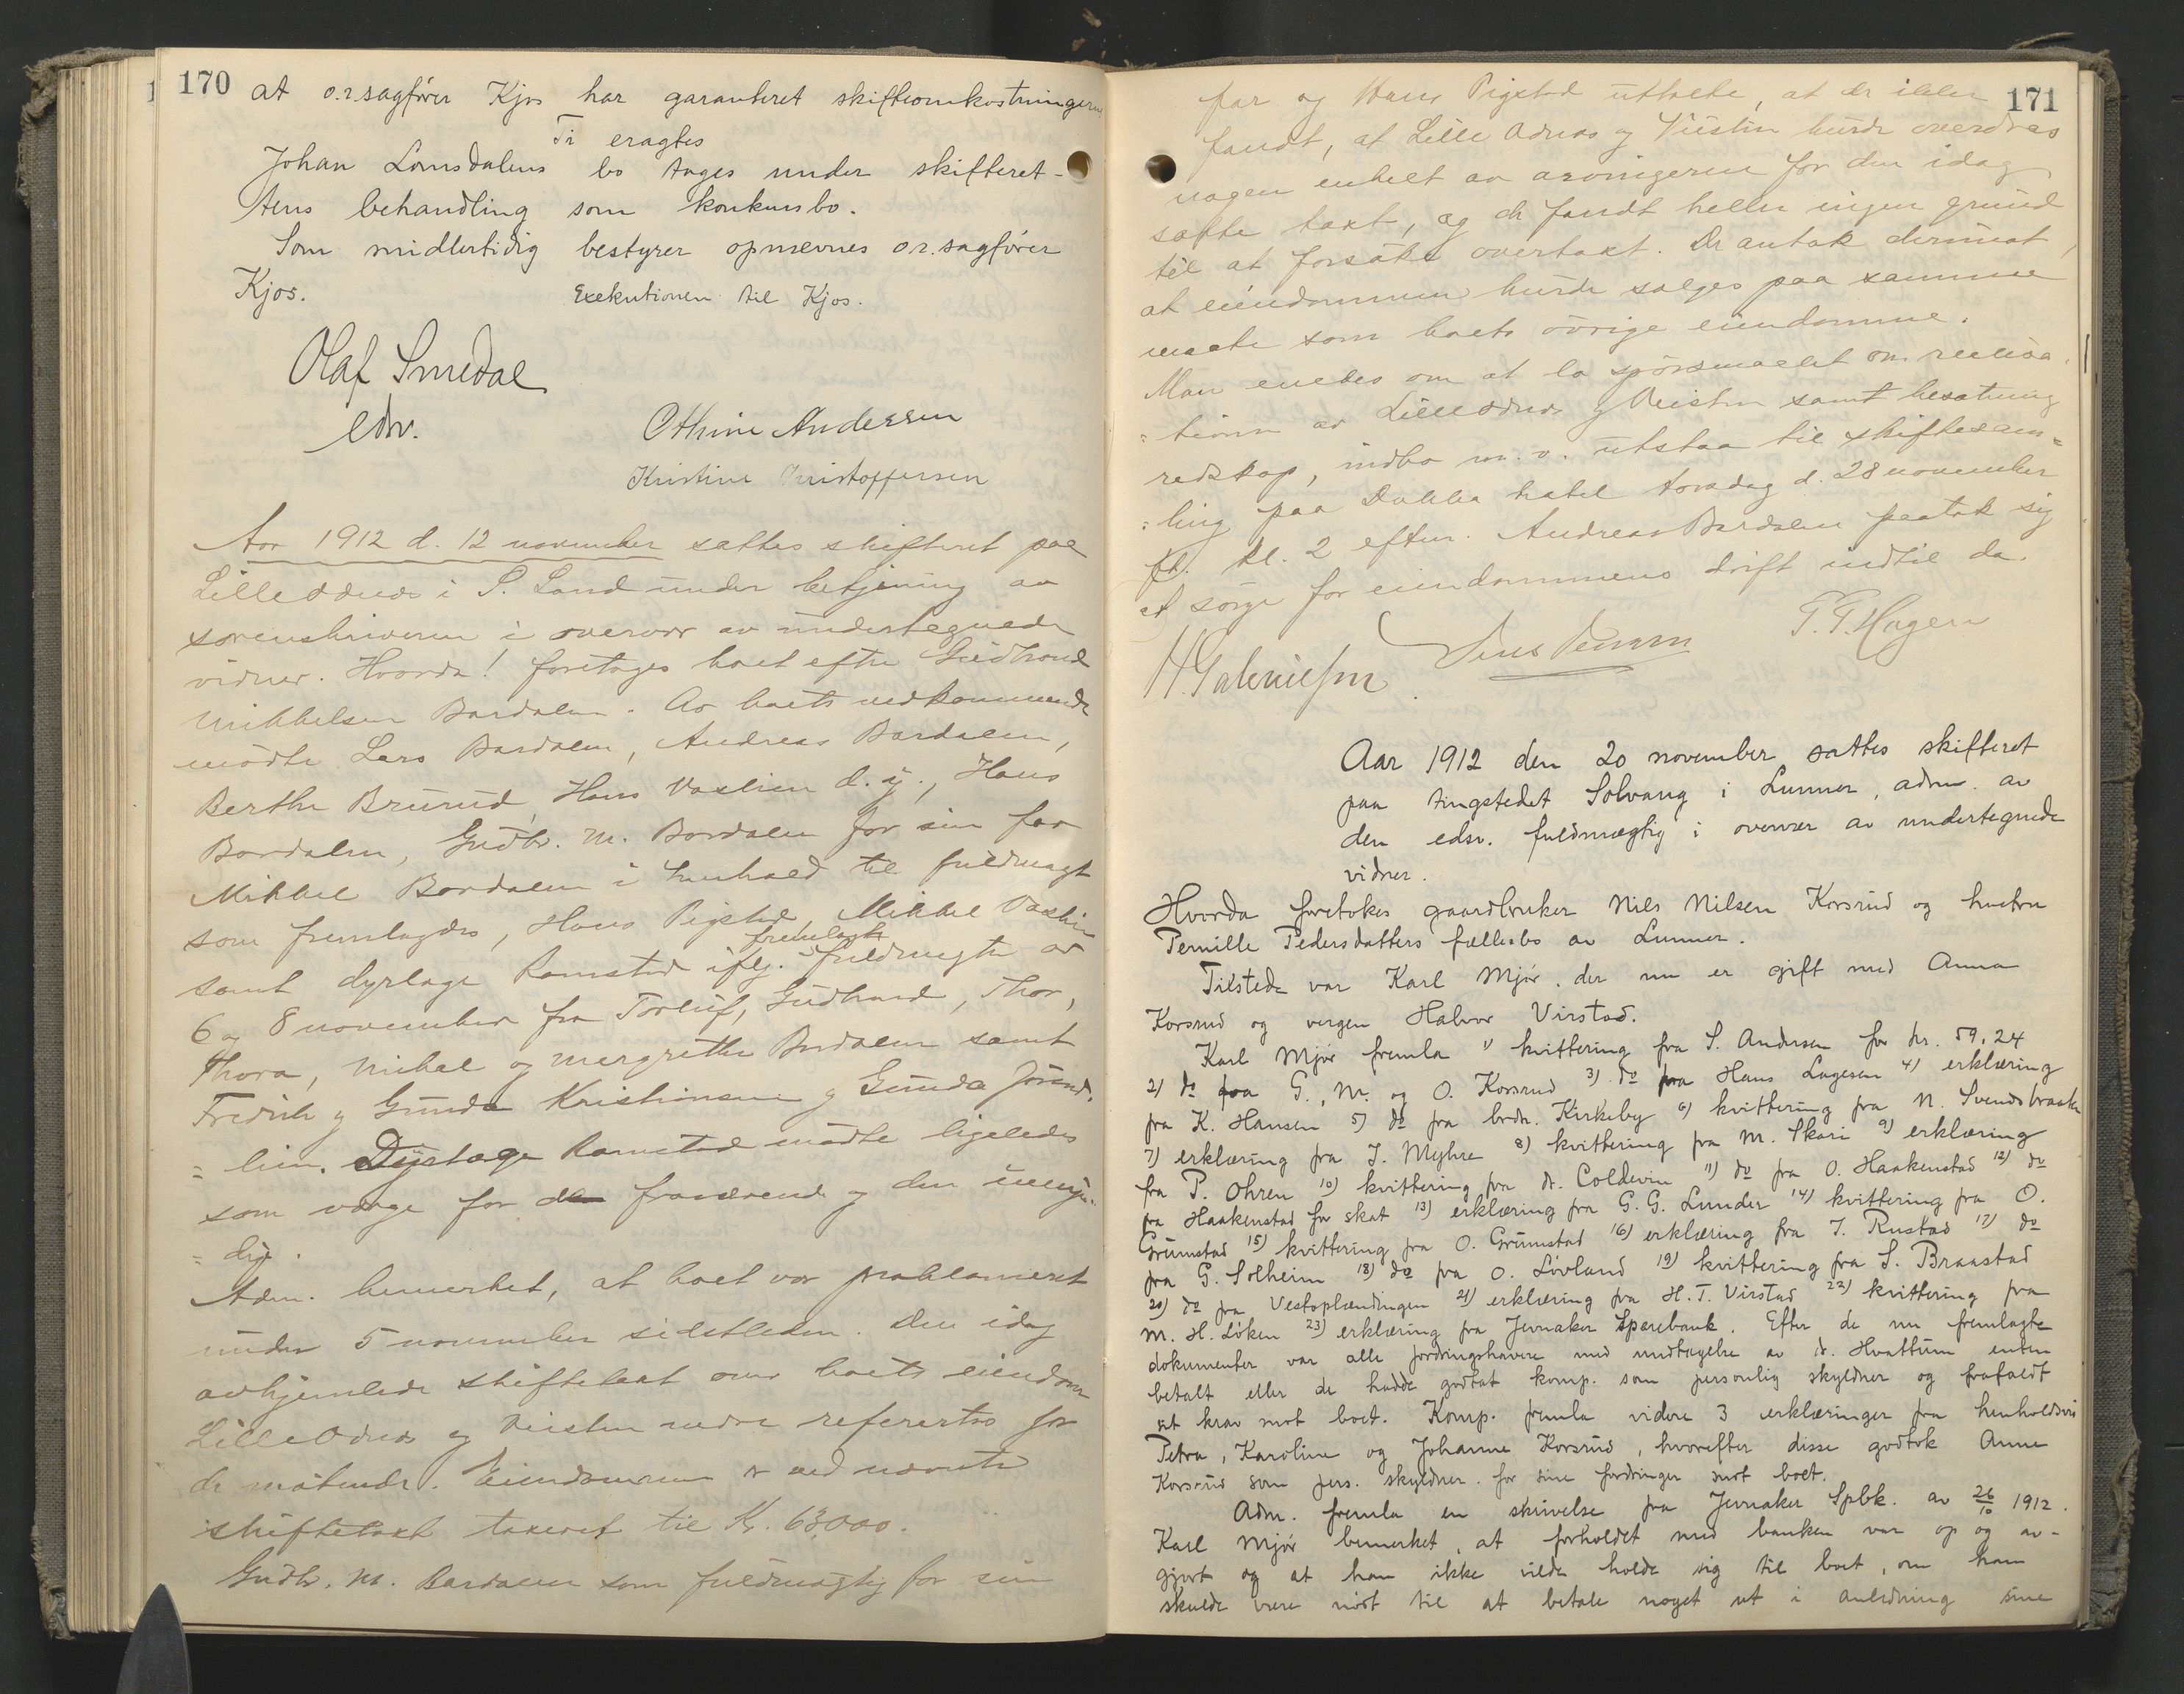 170
at o.r.sagfører Kjos har garanteret skifteomkostningerne
Ti eragtes
Johan Lomsdalens bo tages under skifteret-
tens behandling som konkursbo.
Som midlertidig bestyrer opnævnes o.r.sagfører
Kjos. Exekutionen til Kjos.
Olaf Smedal
edsv.
Othine Andersen
Kristine Kristoffersen
Aar 1912 d. 12 november sattes skifteret paa
Lilleødnæs i S. Land under betjening av
sorenskriveren i overvær av undertegnede
vidner. Hvorda! foretoges boet efter Gudbrand
Mikkelsen Bardalen. Av boets vedkommende
mødte Lars Bardalen, Andreas Bardalen,
Berthe Brurud, Hans Vaslien d.y., Hans
Bardalen, Gudbr. M. Bardalen for sin far
Mikkel Bardalen i henhold til fuldmagt
som fremlagdes, Hans Pigstad, Mikkel Vaslien
fremlagte
samt dyrlæge Ramstad iflg. fuldmagter av
6 og 8 november fra Torleif, Gudbrand, Thor,
Thora, Mikal og Mergrethe Bardalen samt
Fredrik og Gunda Kristiansen og Gunda Jørand-
= lien. Dyrlæge Ramstad mødte ligeledes
som værge for de fraværende og den umyn-
= dig.
Adm. bemerket, at boet var proklameret
under 5 november sidstleden. Den idag
avhjemlede skiftetaxt over boets eiendom
Lilleødnæs og Veisten nedre referertes for
de møtende. Eiendommen er ved nævnte
skiftetaxt taxeret til Kr. 63,000.
Gudbr. M. Bardalen som fuldmægtig for sin
171
far og Hans Pigstad uttalte, at de ikke
fandt, at Lille Ødnæs og Veisten burde overdraes
nogen enkelt av arvingerne for den idag
satte taxt, og de fandt heller ingen grund
til at forsøke overtaxt. De antok derimot,
at eiendommen burde sælges paa samme
maate som boets øvrige eiendomme.
Man enedes om at la spørsmaalet om realisa-
= tionen av Lilleødnæs og Veisten samt besætning
redskap, indbo m.v. utstaa til skiftesam-
= ling paa Dokka hotel torsdag d. 28 november
ft. kl. 2 efterm. Andreas Bardalen paatok sig
at sørge for eiendommens drift indtil da.
H. Gabrielsen
Aar 1912 den 20 november sattes skifteret
paa tingstedet Solvang i Lunner, adm. av
den edsv. fuldmægtig i overvær av undertegnede
vidner.
Hvorda foretokes gaardbruker Nils Nilsen Korsrud og hustru
Pernille Pedersdatters fællesbo av Lunner.
Tilstede var Karl Mjør, der nu er gift med Anna
Korsrud og vergen Halvor Virstad.
Karl Mjør fremla 1) kvittering fra S. Andersen for kr. 59,24
2) do fra G., M. og O. Korsrud 3) do fra Hans Lagesen 4) erklæring
fra K. Hansen 5) do fra brdr. Kirkeby 6) kvittering fra N. Svendsbraaten
7) erklæring fra J. Myhre 8) kvittering fra M. Skari 9) erklæring
fra P. Ohren 10) kvittering fra dr. Coldevin 11) do fra O. Haakenstad 12) do
fra Haakenstad for skat 13) erklæring fra G. G. Lunder 14) kvittering fra O.
Grumstad 15) kvittering fra O. Grumstad 16) erklæring fra J. Rustad 17) do
fra G. Solheim 18) do fra O. Løvland 19) kvittering fra S. Braastad
20) do fra Vestoplændingen 21) erklæring fra H. T. Virstad 22) kvittering fra
M. H. Løken 23) erklæring fra Jevnaker Sparebank. Efter de nu fremlagte
dokumenter var alle fordringshavere med undtagelse av dr. Hvattum enten
betalt eller de hadde godtat komp. som personlig skyldner og frafaldt
sit krav mot boet. Komp. fremla videre 3 erklæringer fra henholdsvis
Petra, Karoline og Johanne Korsrud, hvorefter disse godtok Anne
Korsrud som pers. skyldner for sine fordringer mot boet.
Adm. fremla en skrivelse fra Jevnaker Spbk. av 26/10 1912.
Karl Mjør bemerket, at forholdet med banken var op og av-
gjort og at han ikke vilde holde sig til boet, om han
skulde være nødt til at betale noget ut i anledning sine